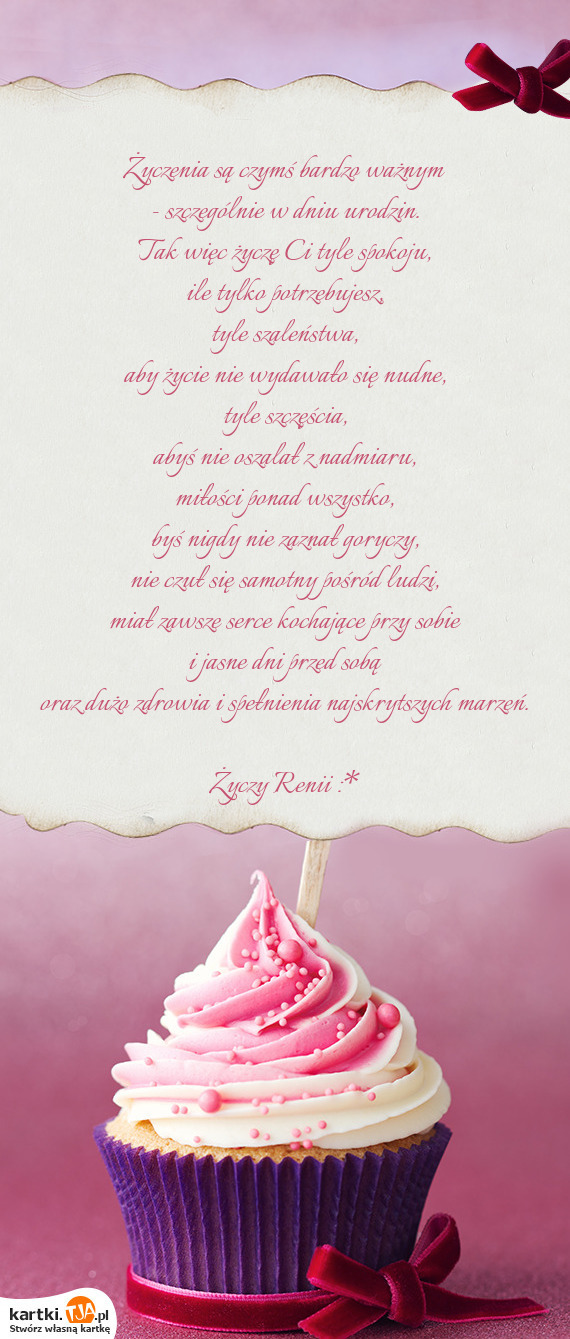 Życzenia są czymś bardzo ważnym
- szczególnie w dniu urodzin.
Tak więc życzę Ci tyle spokoju,
ile tylko potrzebujesz,
tyle szaleństwa,
aby życie nie wydawało się nudne,
tyle szczęścia,
abyś nie oszalał z nadmiaru,
miłości ponad wszystko,
byś nigdy nie zaznał goryczy,
nie czuł się samotny pośród ludzi,
miał zawsze serce kochające przy sobie
i jasne dni przed sobą
oraz dużo zdrowia i spełnienia najskrytszych marzeń.
Życzy Renii :*
kartki.TJA.pl
Stwórz własną kartkę